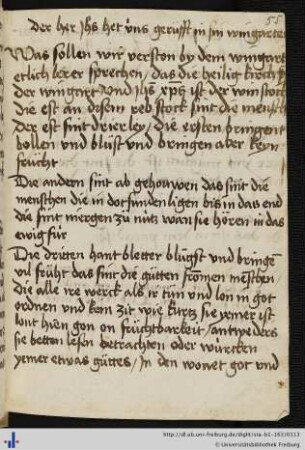 55
der her Jhs het úns gerufft in sin wingarten
Was sollen wir verston by dem wingart
etlich lerer sprechen / das die heilig kirch sy
der wingart und Jhs xps ist der winstock
die est an disem reb stock sint die mensch
der est sint drierley / die ersten bringent
bollen und blúst und bringen aber keyn
frúcht
Die andern sint ab gehouwen das sint die
menschen die in dotsunden ligen bis in das end
die sint niergen zú nútz wan sie hören in das
ewig fúr
Die dritten hant bletter blúgst und bringen
vil frúht das sint die gútten fromen menschen /
die alle ire werck als ir tún und lon in got
ordnen und kein zit wie kurtz sie yemer ist
lont hien gon on frúchtbarkeit / antweders
sie betten lesen betrachten oder wúrcken
yemer etwas gúttes / In den wonet got und
http://dl.ub.uni-freiburg.de/diglit/sta-b1-163/0113
© Universitätsbibliothek Freiburg